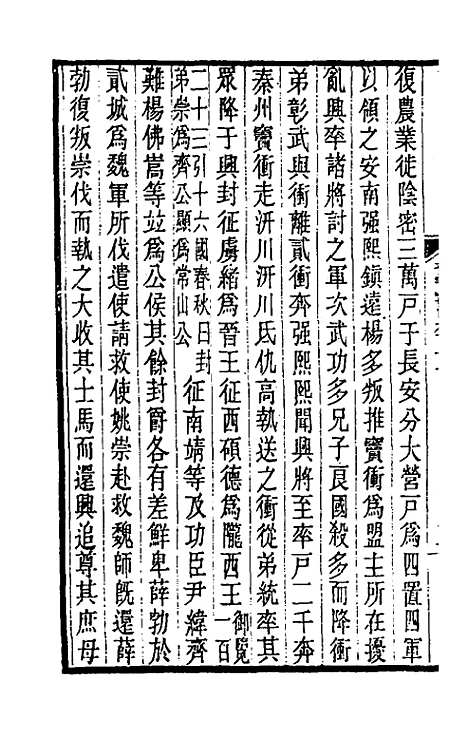 復農業徙陰密三萬戸于長安分大營戸爲四置四軍
以領之安南强熙鎮遠楊多叛推竇衝爲盟主所在擾
亂興率諸將討之軍次武功多兄子良國殺多而降衝
弟彰武與衝離貳衝奔强熙熙聞興將至率戸二千奔
秦州竇衝走汧川汧川氐仇高執送之衝從弟統率其
眾降于興封征虜緒爲晉王征西碩德爲隴西王御覽一百
二十三引十六國春秋曰封弟崇爲齊公顯爲常山公征南靖等及功臣尹緯齊
難楊佛嵩等竝爲公侯其餘封爵各有差鮮卑薛勃於
貳城爲魏軍所伐遣使請救使姚崇赴救魏師既還薛
勃復叛崇伐而執之大收其士馬而還興追尊其庶母